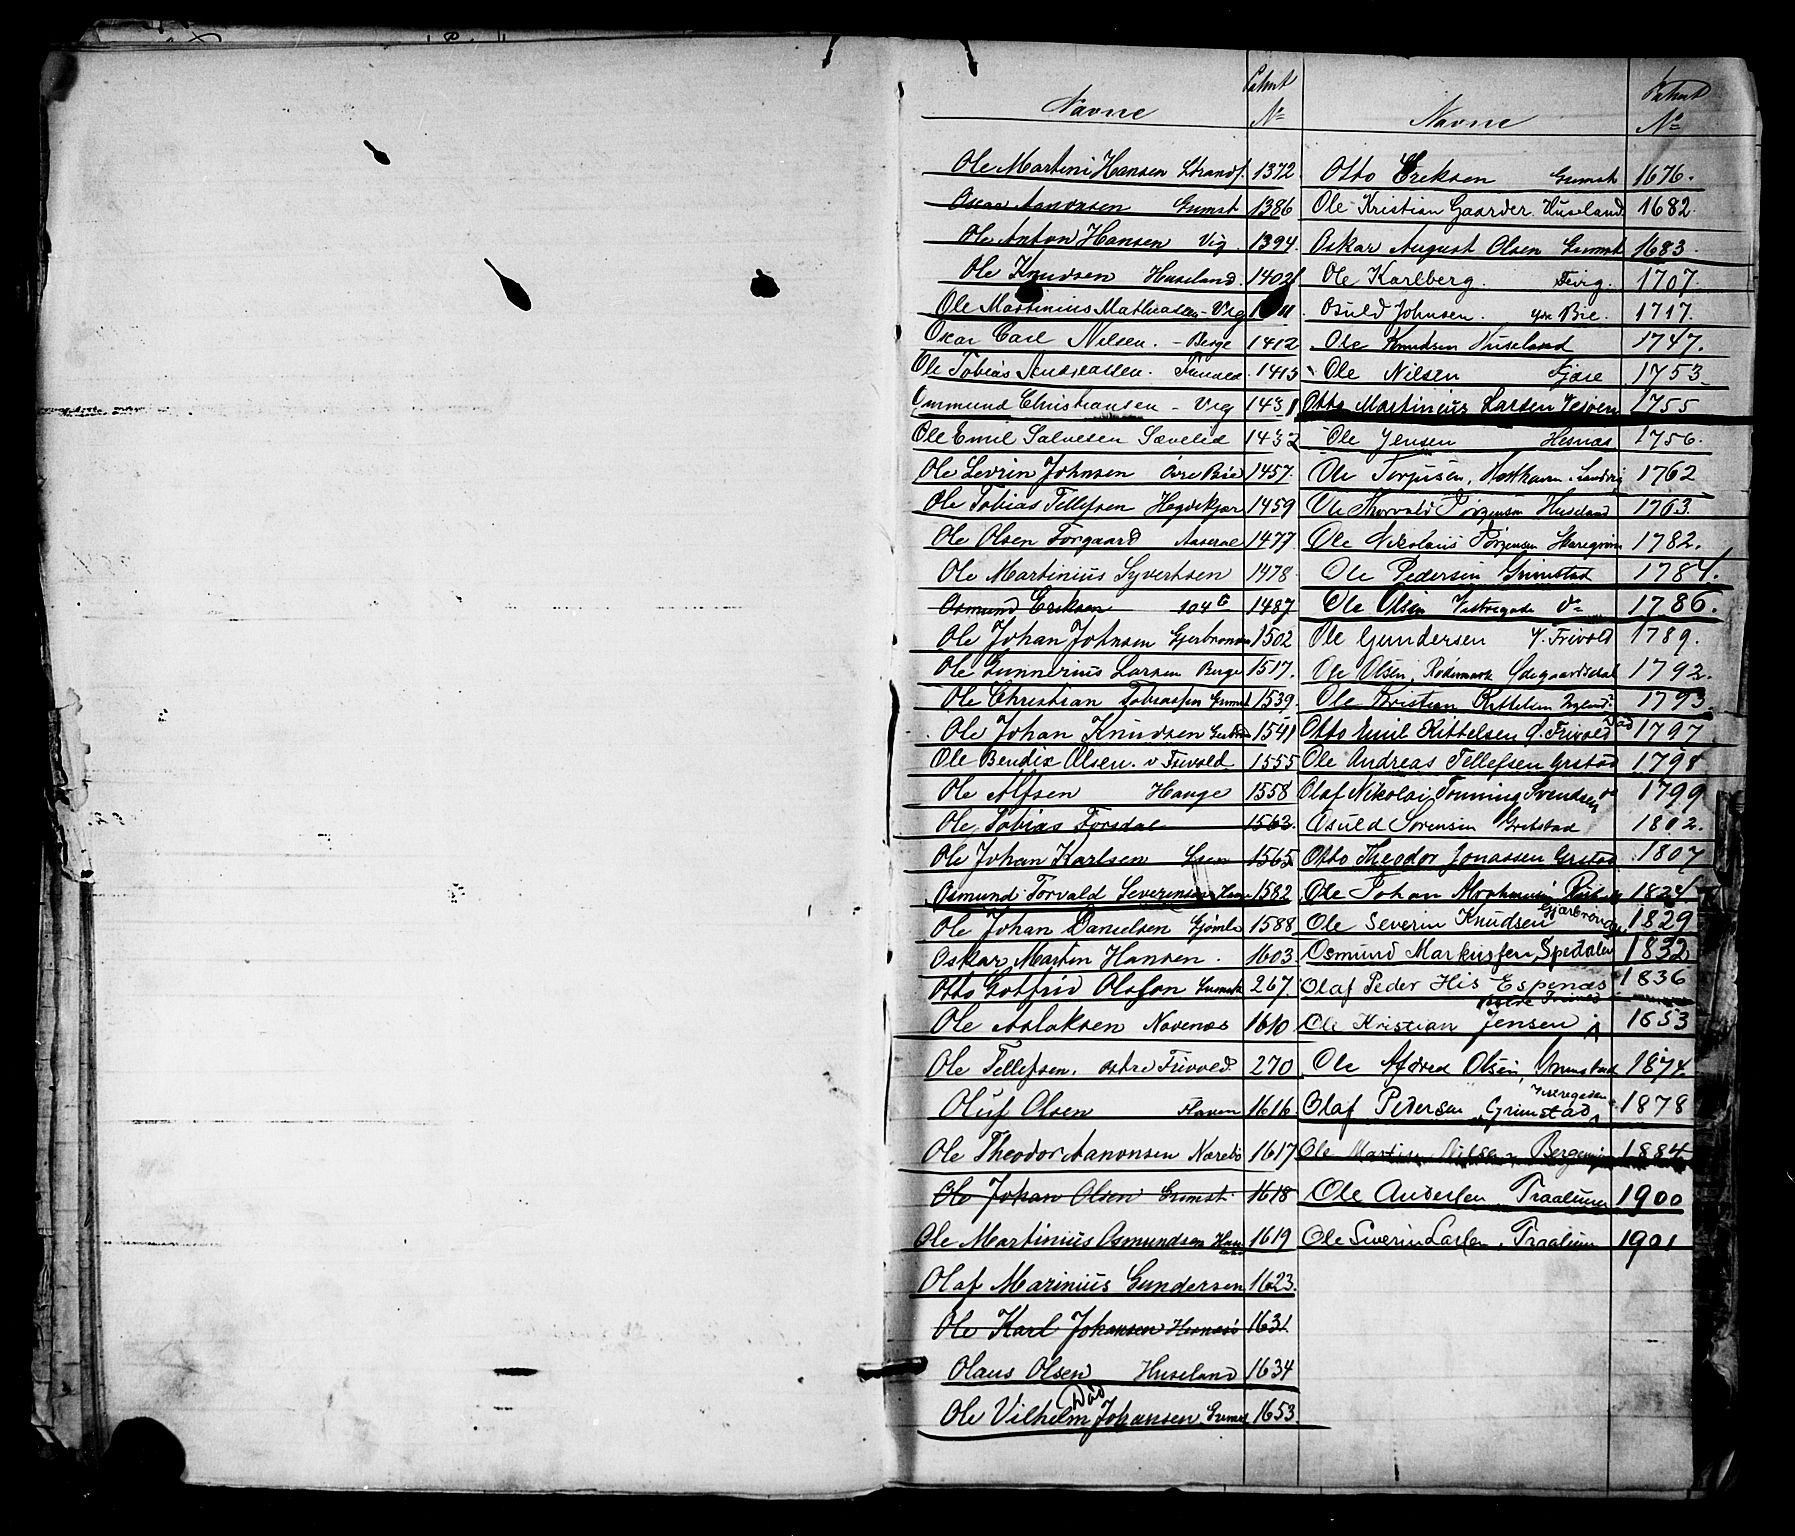 Navne
Patent
No
Ole Martini Hansen Strandf. 1372
Oscar Aanonsen Grimst 1386
Ole Anton Hansen Vig. 1394
Ole Knudsen Huseland. 1402
Ole Martinius Mathiasen - Vig
Oskar Carl Nilsen. - Berge 1412
Ole Tobias Andreassen. 1413
Gurmund Christiansen - Vig 1431
Ole Emil Salvesen Sævelid 1432
Ole Levrin Johnsen Øvre Bie 1457.
Ole Tobias Tellefsen Hegdekjær 1459
Ole Olsen Torgaard Aaseral 1477
Ole Martinius Syvertsen 1478
Osmund Eriksen 104 G 1487
Ole Johan Johnsen Gjerbrønden 1502
Ole Gunnerius Larsen Berge 1517.
Ole Christian Tobiassen Grimst 1539.
Ole Johan Knudsen 1541
Ole Bendix Olsen. v Frivold 1555
Ole Alfsen Hauge 1558
Ole Tobias Forsdal 1563.
Ole Johan Karlsen 1565
Osmund Torvald Severinsen 1582
Ole Johan Danielsen Gjømle 1588
Oskar Martin Hansen. 1603
Otto Gotfrid Olsson Grimst 267.
Ole Aslaksen Novenæs 1610
Ole Tellefsen. østre Frivold 270
Oluf Olsen 1616
Ole Theodor Aanonsen Nærebø 1617
Ole Johan Olsen Grimst. 1618
Ole Martinius Osmundsen 1619
Olaf Marinius Gundersen 1623.
Ole Karl Johansen Hesnesø 1631
Olaus Olsen Huseland 1634
Død
Ole Vilhelm Johansen Grimst 1653
Navne
Patent
No
Otto Eriksen Grimst 1676.
Ole Kristian Gaarder. Huseland 1682.
Oskar August Olsen Grimst 1683.
Ole Karlberg. Fevig. 1707.
Osuld Johnsen. Bie. 1717.
Ole Knudsen Huseland 1747.
Ole Nilsen Fjære 1753
Otto Martinius Larsen 1755
Ole Jensen Hesnæs 1756.
Ole Torjusen, 1762
Ole Thorvald Jørgensen Huseland 1763.
Ole Nikolaus Jørgensen 1782.
Ole Pedersen Grimstad 1784.
Ole Olsen Vestregade do 1786.
Ole Gundersen V. Frivold 1789.
Ole Olsen, Ødegaardsdal 1792.
Ole Kristian Kittelsen 1793
Død
Otto Emil Kittelsen Ø. Frivold 1797
Ole Andreas Tellefsen Grstad 1798
Olaf Nikolai Tonning Svendsen do 1799
Osuld Sørensen 1802.
Otto Theodor Jonassen Grstad 1807
Ole Johan Abrahamsen 1824
Ole Severin Knudsen Gjærbrønden 1829
Osmund Markussen, Spedalen 1832
Olaf Peder His Espenæs 1836
Ole Kristian Jensen 1853
Ole Alfred Olsen, Grimstad 1874.
Olaf Pedersen Vestregaden Grimstad 1878
Ole Martin Nilsen, 1884
Ole Andersen, Traalum 1900
Ole Severin Larsen, Traalum 1901